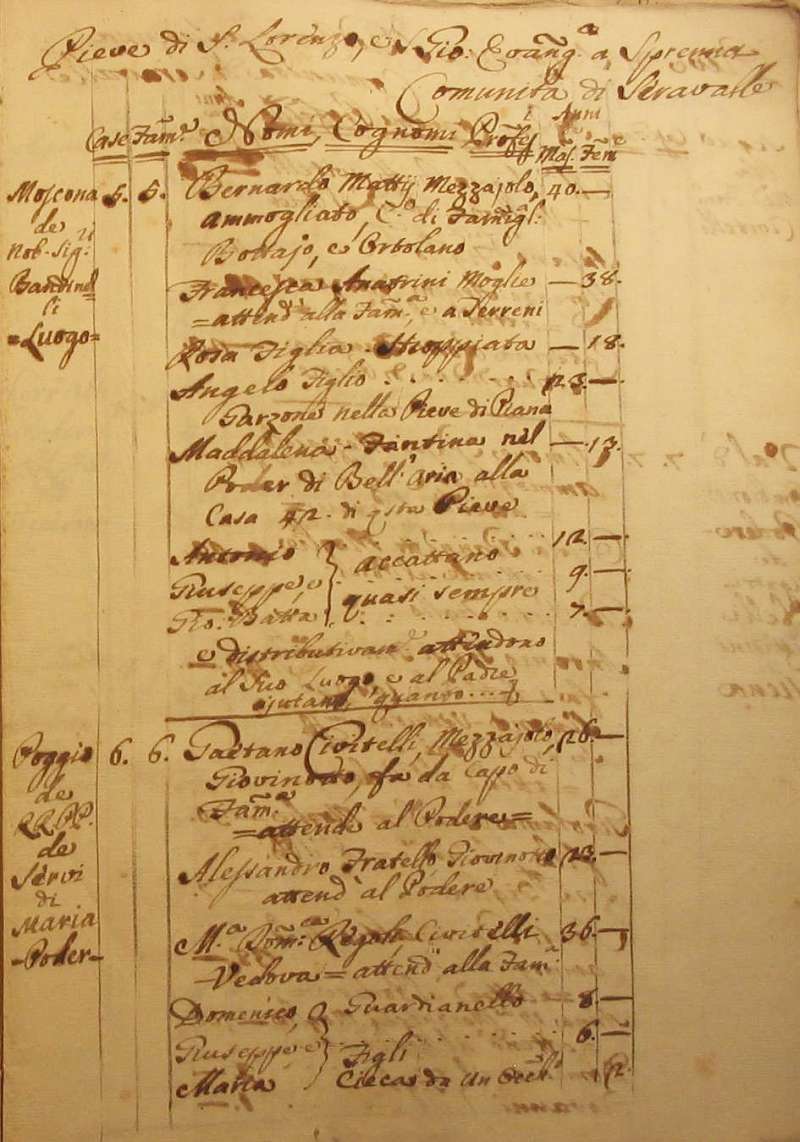 Pieve di S. Lorenzo, e S Gio: Evang.a a Sprenna
Comunità di Seravalle
Case Fam.e Nomi, Cognomi Profes.i Anni
Mas. Fem.e
Moscona 5. 5. Bernardo Mattij Mezzajolo, 40. —
de ammogliato, C.o di Famigl:
Nob. Sig.ri Bottajo, e Ortolano
Bandinel Francesca Anatrini Moglie — 38.
li = attend' alla Fam.a, e a Terreni
=Luogo= Rosa Figlia Stroppiata — 18.
Angelo Figlio 23. —
Garzone nella Pieve di Piana
Maddalena - Fantina nel — 13.
Poder di Bell'aria alla
Casa 42. di qsta Pieve
Antonio accattano 12. —
Giuseppe e quasi sempre 9. —
Gio. Batta 7. —
e distributivam.e attendono
al suo Luogo e al Padre
ajutano,
Poggio 6. 6. Gaetano Civitelli, Mezzajolo, 26. —
de Giovinotto, fa da Capo di
RR.PP. Fam.a
de = attende al Podere =
Servi Alessandro Fratello Giovinotto 23. —
di attend' al Podere
Maria M.a Dom.ca Regola Civitelli 36. —
-Poder- Vedova = attend' alla Fam.
Domenico, Guardianello 8 —
Giuseppe e 6. —
Maria Figli
Cieca da un Occh.o 12.